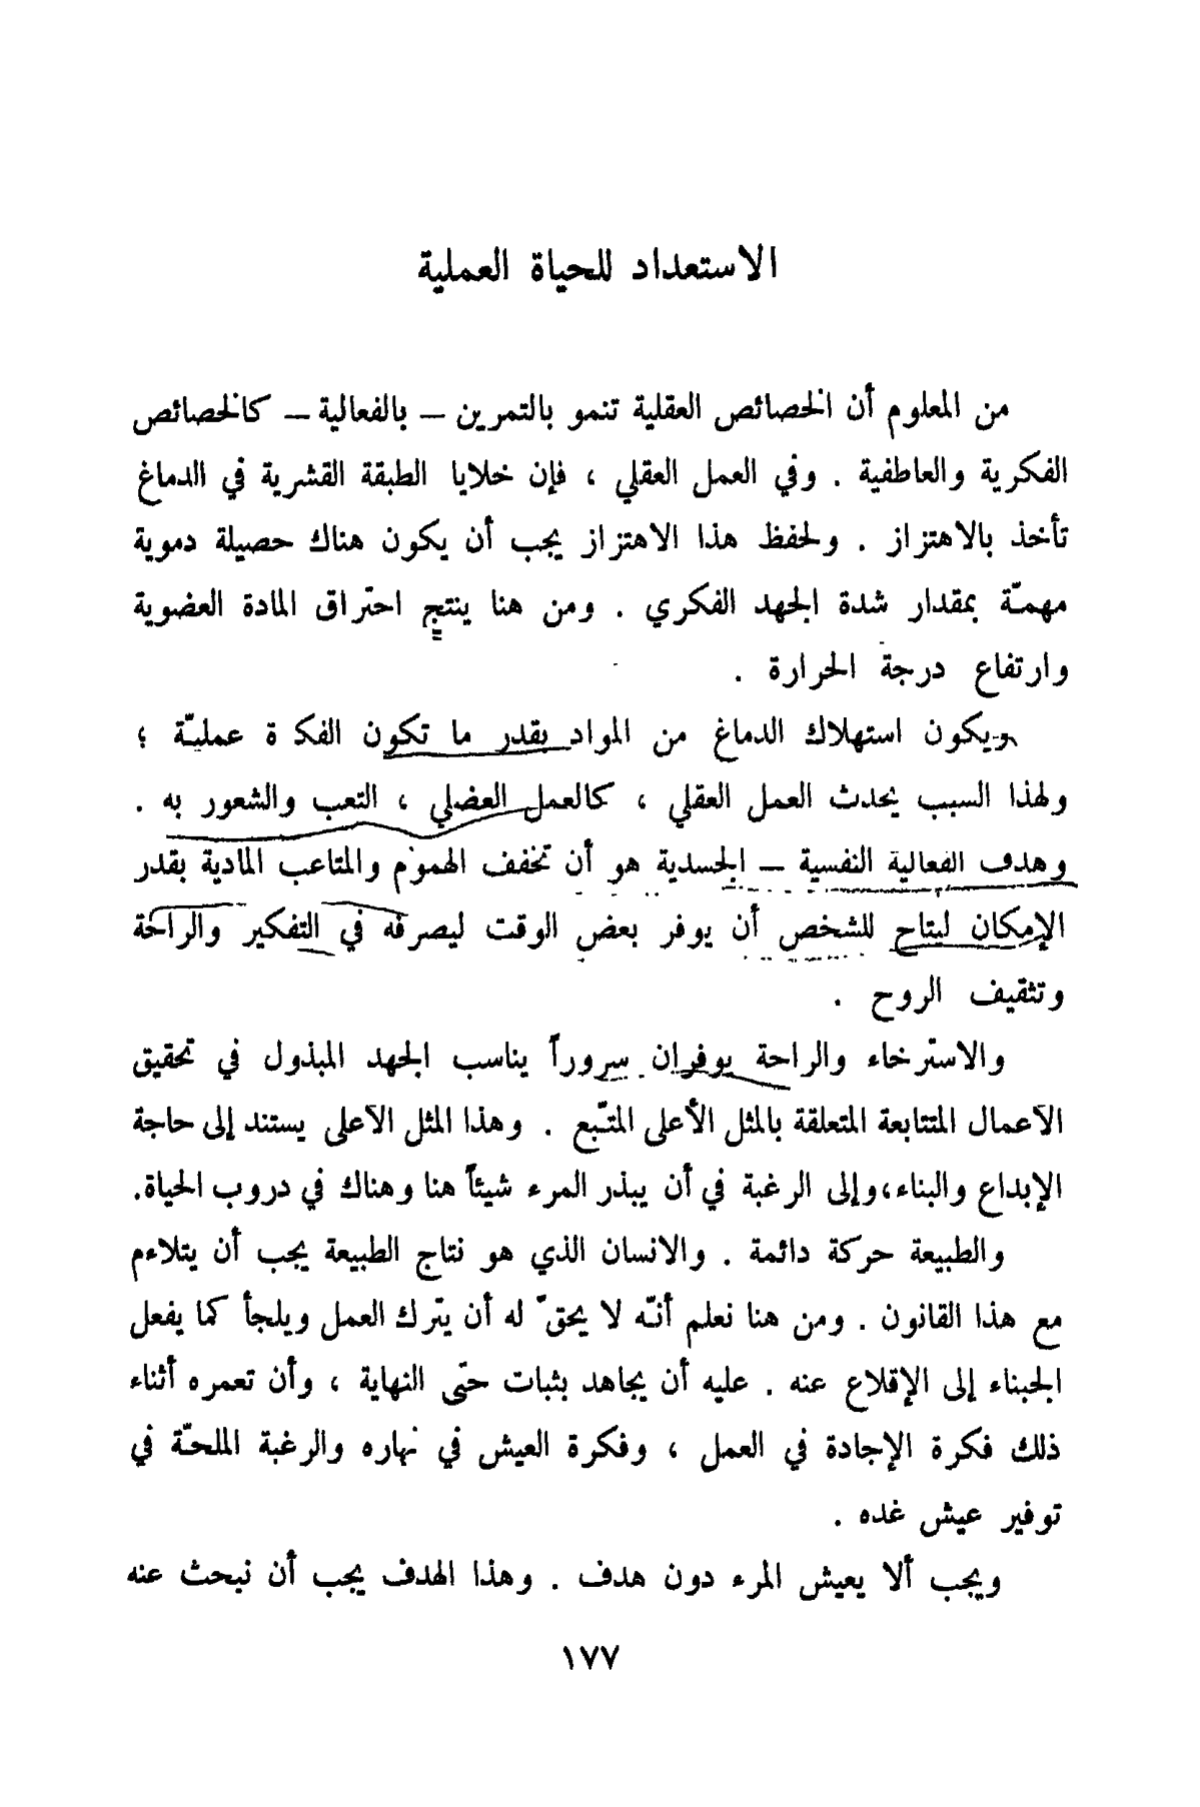 الاستعداد للحياة العملية
من المعلوم أن الخصائص العقلية تنمو بالتمرين – بالفعالية – كالخصائص
الفكرية والعاطفية . وفي العمل العقلي ، فإن خلايا الطبقة القشرية في الدماغ
تأخذ بالاهتزاز . ولحفظ هذا الاهتزاز يجب أن يكون هناك حصيلة دموية
مهمّة بمقدار شدة الجهد الفكري . ومن هنا ينتج احتراق المادة العضوية
وارتفاع درجة الحرارة .
ويكون استهلاك الدماغ من المواد بقدر ما تكون الفكرة عمليّة ؛
ولهذا السبب يحدث العمل العقلي ، كالعمل العضلي ، التعب والشعور به .
وهدف الفعالية النفسية – الجسدية هو أن تخفف الهموم والمتاعب المادية بقدر
الإمكان ليتاح للشخص أن يوفر بعض الوقت ليصرفه في التفكير والراحة
وتثقيف الروح .
والاسترخاء والراحة يوفران سروراً يناسب الجهد المبذول في تحقيق
الأعمال المتتابعة المتعلقة بالمثل الأعلى المتّبع . وهذا المثل الأعلى يستند إلى حاجة
الإبداع والبناء،وإلى الرغبة في أن يبذر المرء شيئاً هنا وهناك في دروب الحياة.
والطبيعة حركة دائمة . والانسان الذي هو نتاج الطبيعة يجب أن يتلاءم
مع هذا القانون . ومن هنا نعلم أنّه لا يحقّ له أن يترك العمل ويلجأ كما يفعل
الجبناء إلى الإقلاع عنه . عليه أن يجاهد بثبات حتّى النهاية ، وأن تعمره أثناء
ذلك فكرة الإجادة في العمل ، وفكرة العيش في نهاره والرغبة الملحّة في
توفير عيش غده .
ويجب ألا يعيش المرء دون هدف . وهذا الهدف يجب أن نبحث عنه
١٧٧